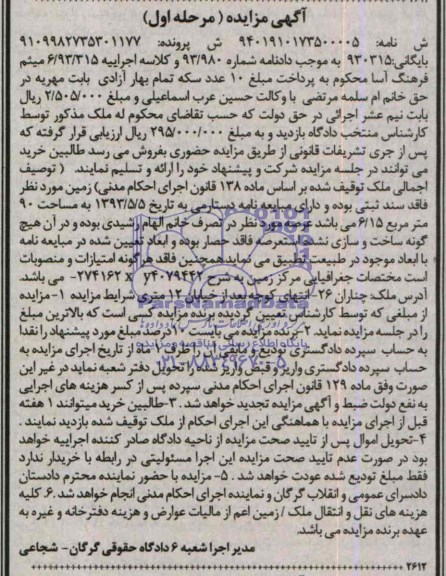 آگهی مزایده ( مرحله اول)
ش نامه: ۹۴۰۱۹۱۰۱۷۳۵۰۰۰۰۵ ش پرونده: ۹۱۰۹۹۸۲۷۳۵۳۰۱۱۷۷
بایگانی:۹۳۰۳۱۵ به موجب دادنامه شماره ۹۳/۹۸۰ و کلاسه اجراییه ۶/۹۳/۳۱۵ میثم
فرهنگ آسا محکوم به پرداخت مبلغ ۱۰ عدد سکه تمام بهار آزادی بابت مهریه در
حق خانم ام سلمه مرتضی با وکالت حسین عرب اسماعیلی و مبلغ ۲/۵۰۵/۰۰۰ ریال
بابت نیم عشر اجرائی در حق دولت که حسب تقاضای محکوم له ملک مذکور توسط
کارشناس منتخب دادگاه بازدید و به مبلغ ۲۹۵/۰۰۰/۰۰۰ ریال ارزیابی قرار گرفته که
پس از جری تشریفات قانونی از طریق مزایده حضوری بفروش می رسد طالبین خرید
می توانند در جلسه مزایده شرکت و پیشنهاد خود را ارائه و تسلیم نمایند. ( توصیف
اجمالی ملک توقیف شده بر اساس ماده ۱۳۸ قانون اجرای احکام مدنی) زمین مورد نظر
فاقد سند ثبتی بوده و دارای مبایعه نامه دستی به تاریخ ۱۳۹۳/۵/۵ به مساحت ۹۰
متر مربع ۶/۱۵ می باشد عرصه مورد نظر در تصرف خانم الهام رشیدی بوده و در آن هیچ
گونه ساخت و سازی نشده است عرصه فاقد حصار بوده و ابعاد تعیین شده در مبایعه نامه
با ابعاد موجود در طبیعت تطبیق می نماید همچنین فاقد هر گونه امتیازات و منصوبات
است مختصات جغرافیایی مرکز زمین به شرح ۷۴۰۷۹۴۴۲ x ۲۷۴۱۶۲- می باشد.
آدرس ملک: چناران ۲۶- انتهای کوچه بعد از خیابان ۱۲ متری شرایط مزایده ۱- مزایده
از مبلغی که توسط کارشناس تعیین گردیده برنده مزایده کسی است که بالاترین مبلغ
را در جلسه مزایده نماید. ۲- برنده مزایده می بایست ۱۰ درصد مبلغ مورد پیشنهاد را نقدا
به حساب سپرده دادگستری تودیع و مابقی را ظرف ۱ ماه از تاریخ اجرای مزایده به
حساب سپرده دادگستری واریز و قبض واریز شده را تحویل دفتر شعبه نماید در غیر این
صورت وفق ماده ۱۲۹ قانون اجرای احکام مدنی سپرده پس از کسر هزینه های اجرایی
به نفع دولت ضبط و آگهی مزایده تجدید خواهد شد. ۳-طالبین خرید میتوانند ۱ هفته
قبل از اجرای مزایده با هماهنگی این اجرای احکام از ملک توقیف شده بازدید نمایند .
۴-تحویل اموال پس از تایید صحت مزایده از ناحیه دادگاه صادر کننده اجراییه خواهد
بود در صورت عدم تایید صحت مزایده این اجرا مسئولیتی در رابطه با خریدار ندارد
فقط مبلغ تودیع شده عودت خواهد شد . ۵- مزایده با حضور نماینده محترم دادستان
دادسرای عمومی و انقلاب گرگان و نماینده اجرای احکام مدنی انجام خواهد شد .۶. کلیه
هزینه های نقل و انتقال ملک / زمین اعم از مالیات عوارض و هزینه دفترخانه و غیره به
عهده برنده مزایده می باشد.
مدیر اجرا شعبه ۶ دادگاه حقوقی گرگان - شجاعی
۲۶۱۲